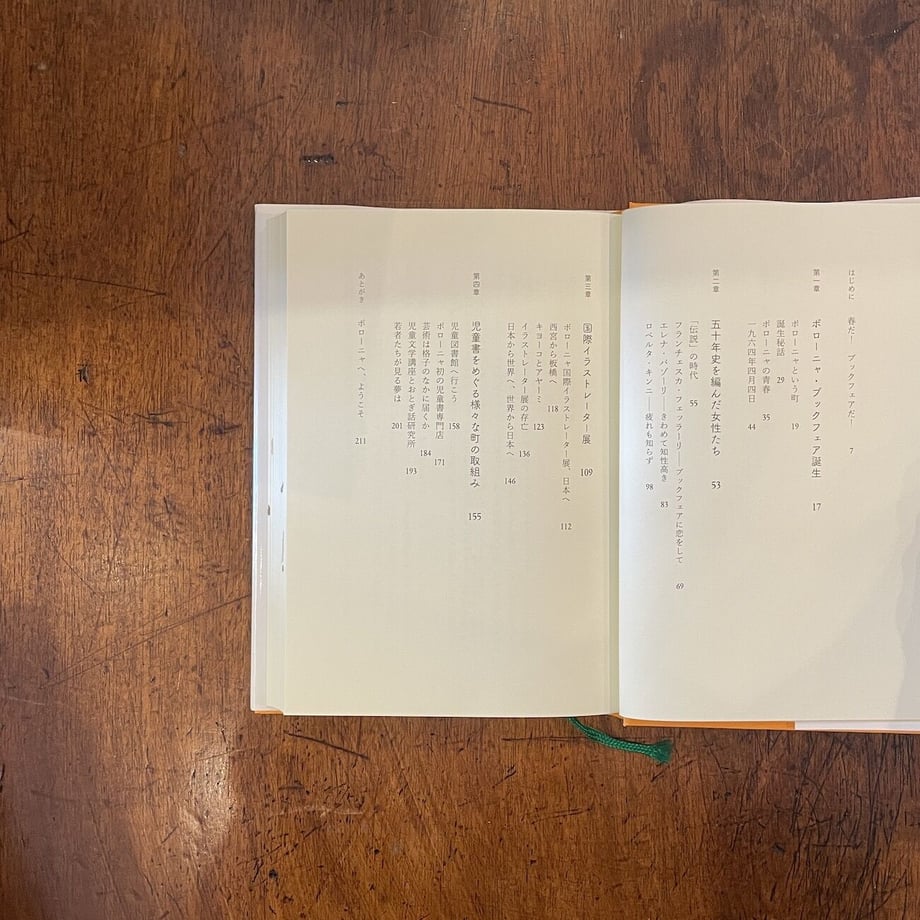 はじめに 春だ！ ブックフェアだ！ 7
第一章 ボローニャ・ブックフェア誕生 17
ボローニャという町 19
誕生秘話 29
ボローニャの青春 35
一九六四年四月四日 44
第二章 五十年史を編んだ女性たち 53
「伝説」の時代 55
フランチェスカ・フェッラーリ──ブックフェアに恋をして 69
エレナ・パゾーリ──きわめて知性高き 83
ロベルタ・キンニ──疲れも知らず 98
第三章 国際イラストレーター展 109
ボローニャ国際イラストレーター展、日本へ 112
西宮から板橋へ 118
キヨーコとアヤーミ 123
イラストレーター展の存亡 136
日本から世界へ、世界から日本へ 146
第四章 児童書をめぐる様々な町の取組み 155
児童図書館へ行こう 158
ボローニャ初の児童書専門店 171
芸術は格子のなかに届くか 184
児童文学講座とおとぎ話研究所 193
若者たちが見る夢は 201
あとがき ボローニャへ、ようこそ 211